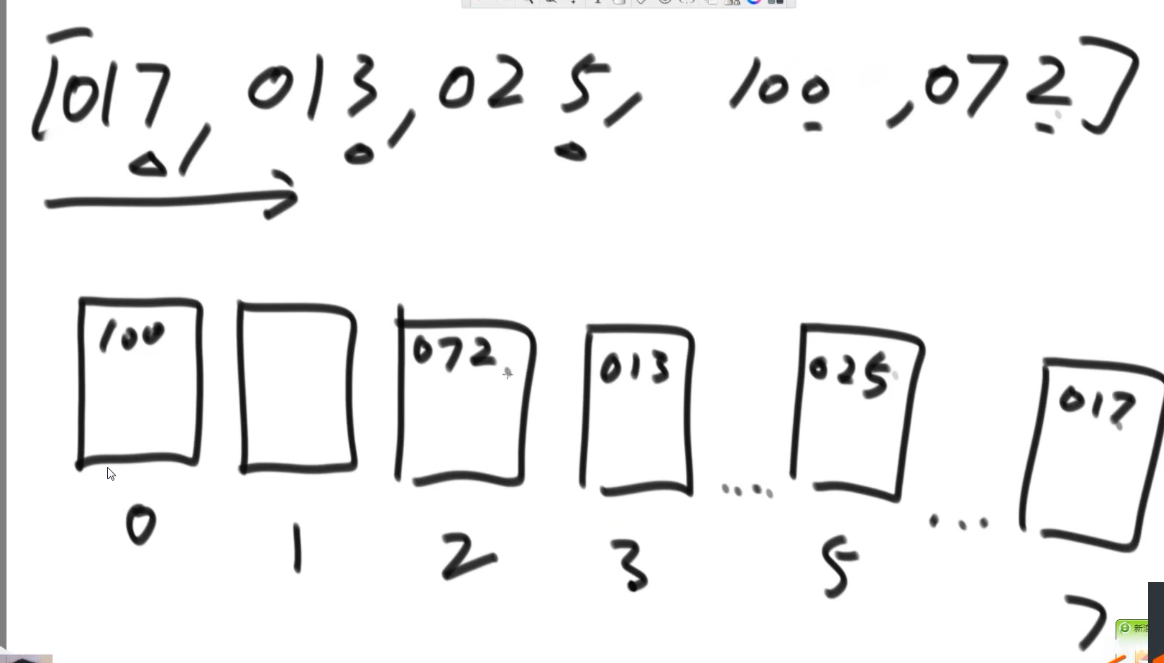 [017, 013, 025, 100, 072]
100 072 013 025 017
0 1 2 3 5 7